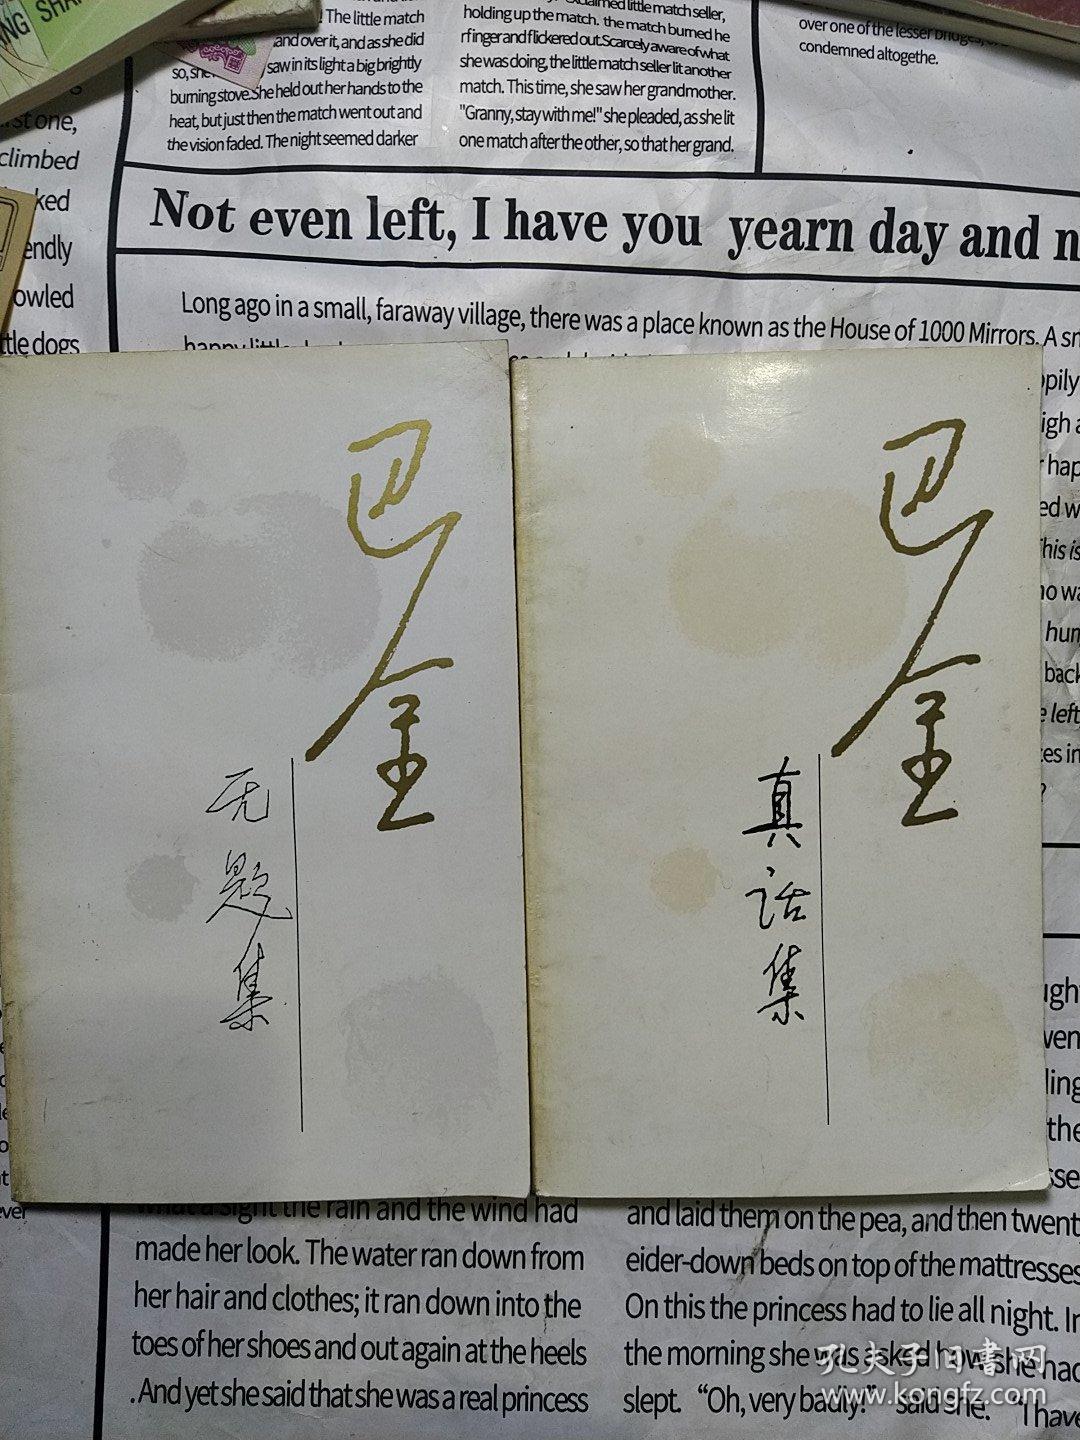 NG SHA
! The little match
and over it, and as she did
so, she saw in its light a big brightly
burning stove. She held out her hands to the
heat, but just then the match went out and
the vision faded. The night seemed darker
little match seller,
holding up the match. the match burned he
r finger and flickered out. Scarcely aware of what
she was doing, the little match seller lit another
match. This time, she saw her grandmother.
"Granny, stay with me!" she pleaded, as she lit
one match after the other, so that her grand.
over one of the lesser bridges,
condemned altogethe.
st one,
climbed
ked
endly
owled
ttle dogs
Not even left, I have you yearn day and n
Long ago in a small, faraway village, there was a place known as the House of 1000 Mirrors. A sm
happy little
ppily
igh a
hap
ed w
This is
no wa
hun
back
e left
ces in
?
巴金
无题集
巴金
真话集
ugh
ven
ling
the
sse
ever
What a sight the rain and the wind had
made her look. The water ran down from
her hair and clothes; it ran down into the
toes of her shoes and out again at the heels
.And yet she said that she was a real princess
and laid them on the pea, and then twent
eider-down beds on top of the mattresses
On this the princess had to lie all night. In
the morning she was asked how she had
slept. “Oh, very badly!” said she. “I have
孔夫子旧书网
www.kongfz.com